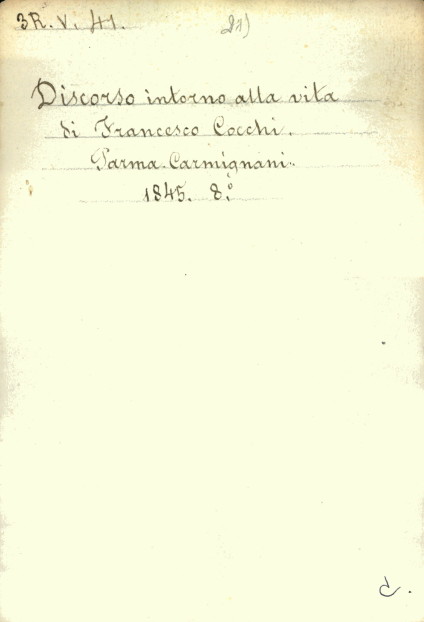 3R. V. 41.
Discorso intorno alla vita
di Francesco Cocchi.
Parma. Carmignani.
1845. 8.°